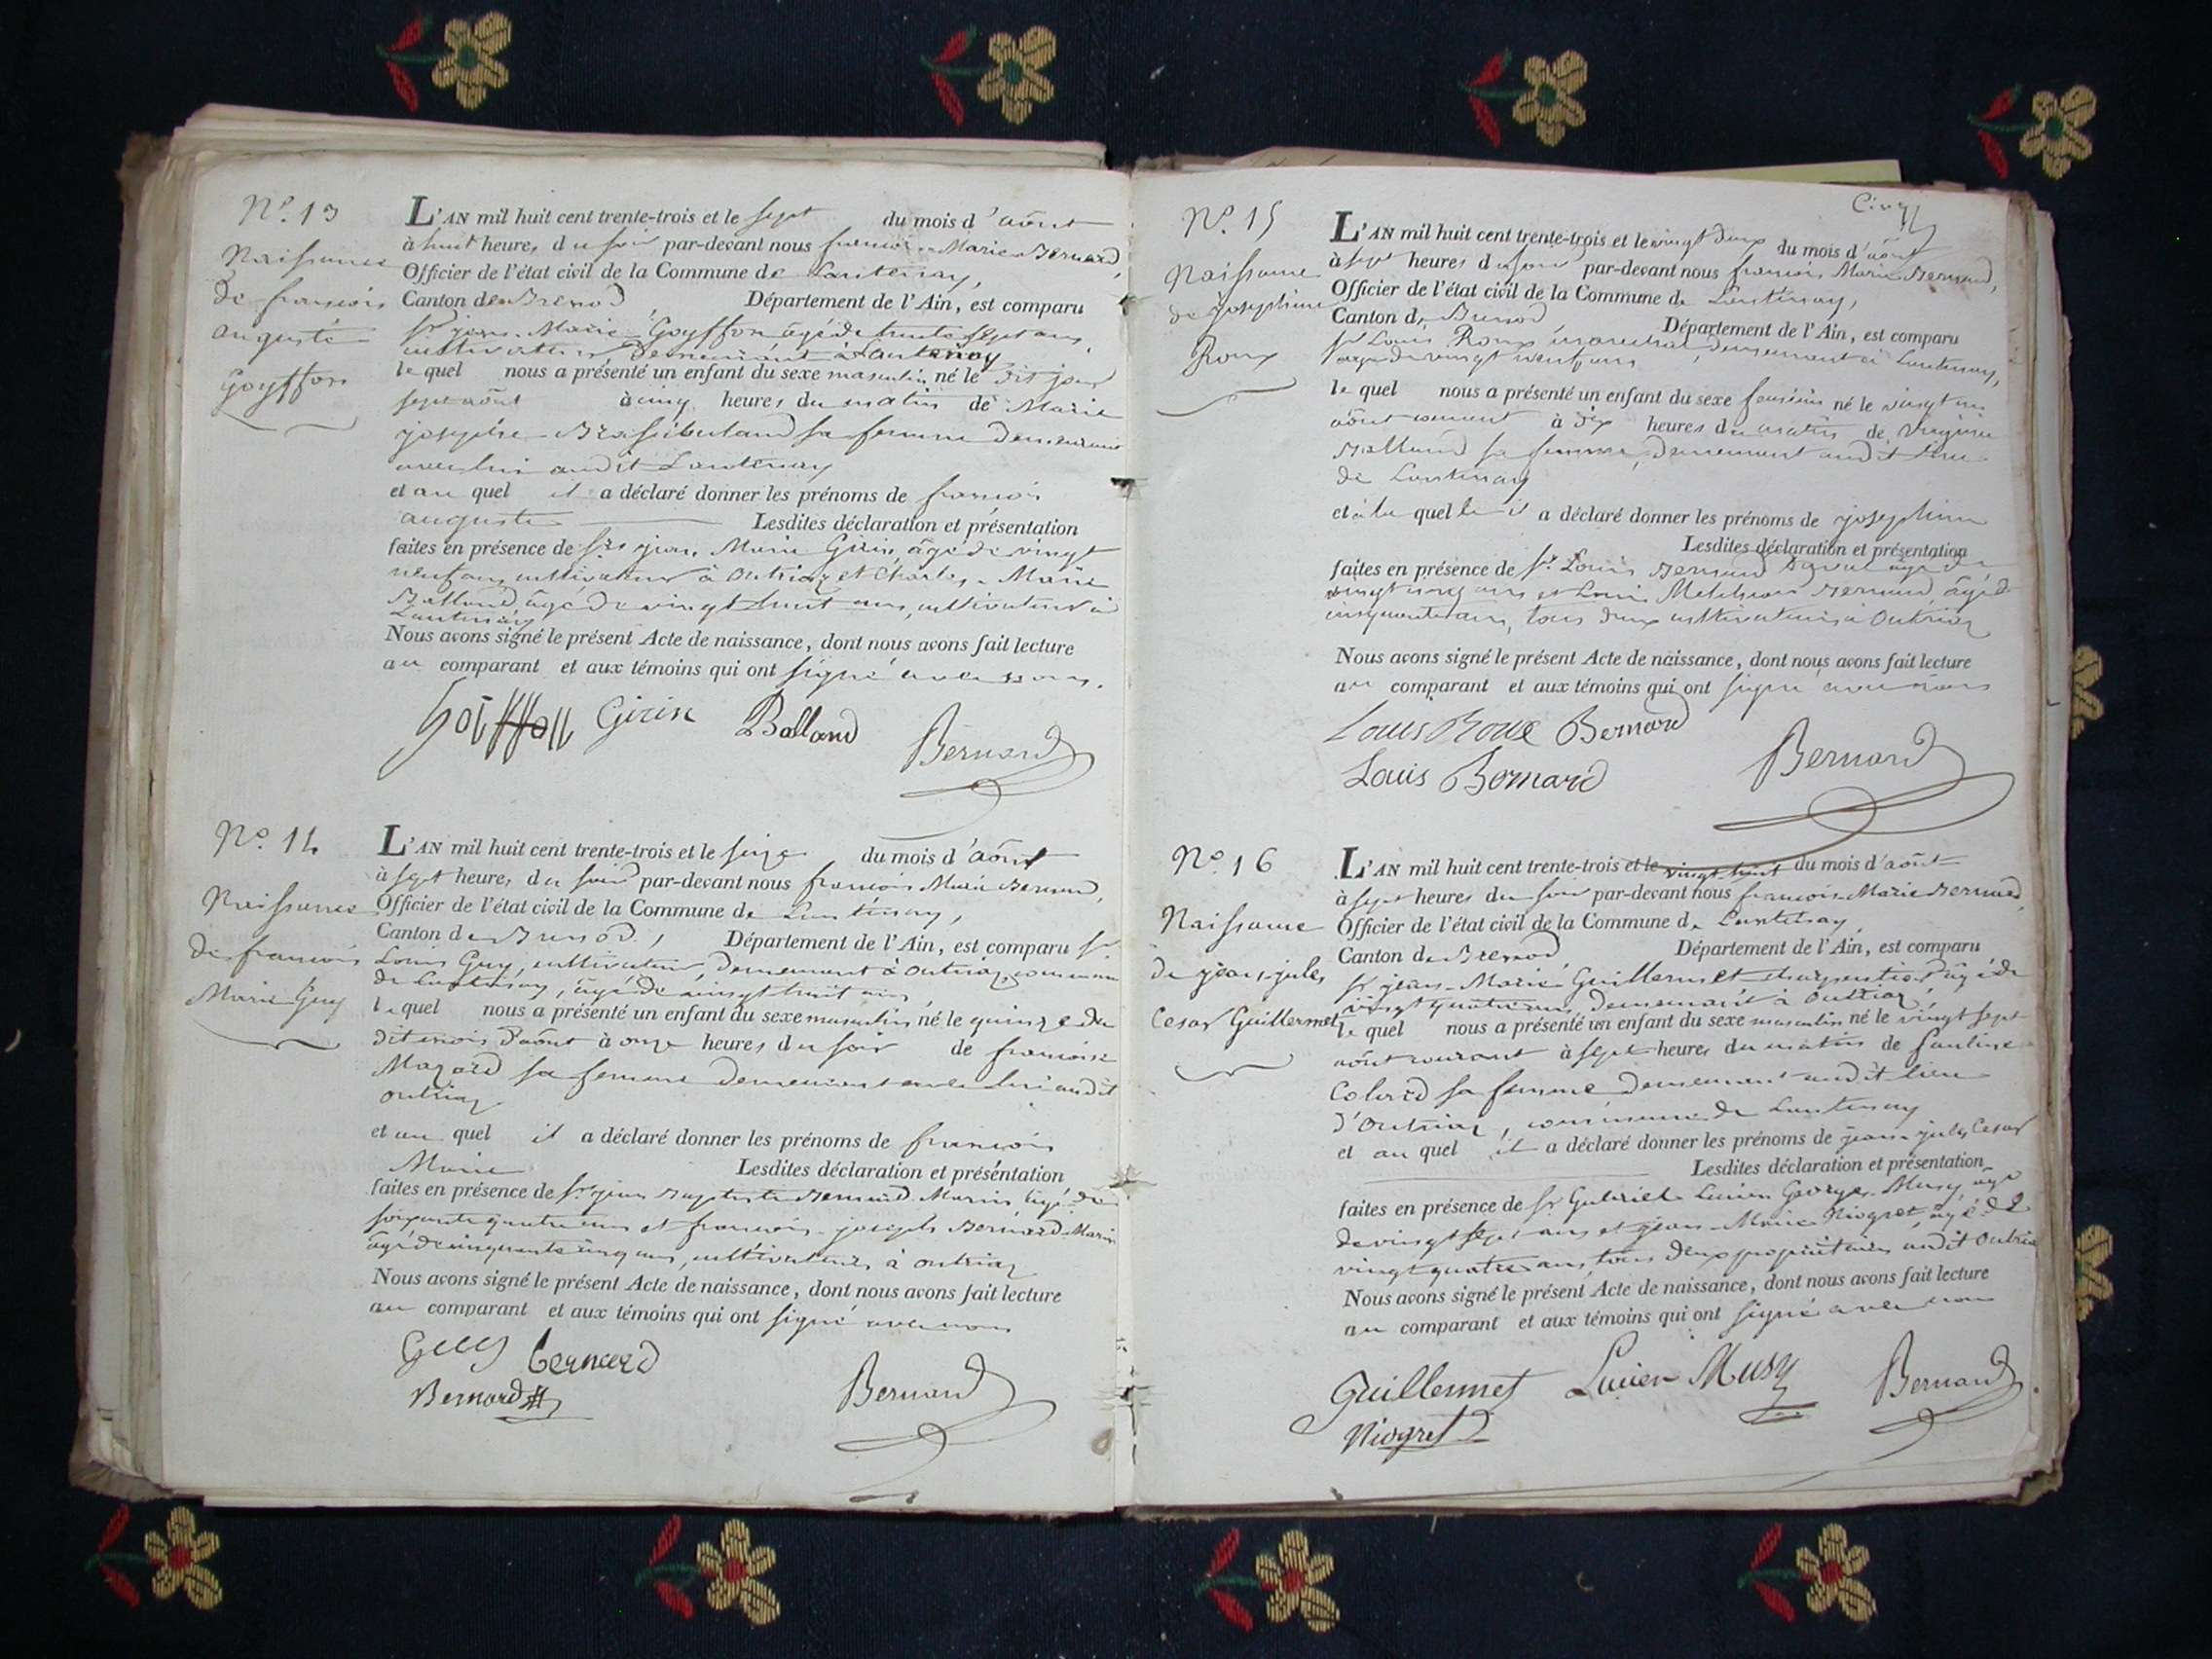 N.º 13
Naissance
de françois
auguste
Goyffon
L'AN mil huit cent trente-trois et le sept du mois d'août
à huit heures du soir par-devant nous françois-Marie Bernard,
Officier de l'état civil de la Commune de Lantenay,
Canton de Brenod Département de l'Ain, est comparu
Sr jean-Marie Goyffon âgé de trente sept ans,
cultivateur, demeurant à Lantenay
le quel nous a présenté un enfant du sexe masculin né le dit jour
sept août à cinq heures du matin de Marie
josephe sa femme demeurant
avec lui audit Lantenay
et au quel il a déclaré donner les prénoms de françois
auguste Lesdites déclaration et présentation
faites en présence de Srs jean Marie Girin, âgé de vingt
neuf ans, cultivateur à Outriaz et Charles-Marie
Balland, âgé de vingt huit ans, cultivateur à
Lantenay
Nous avons signé le présent Acte de naissance, dont nous avons fait lecture
au comparant et aux témoins qui ont signé avec nous.
Goiffon Girin Balland Bernard
N.º 14
Naissance
de francois
Marie Guy
L'AN mil huit cent trente-trois et le seize du mois d'août
à sept heures du soir par-devant nous francois Marie Bernard,
Officier de l'état civil de la Commune de Lantenay,
Canton de Brenod, Département de l'Ain, est comparu Sr
Louis Guy, cultivateur, demeurant à Outriaz, commune
de Lantenay, âgé de vingt huit ans,
le quel nous a présenté un enfant du sexe masculin né le quinze du
dit mois d'août à onze heures du soir de francoise
Mazard sa femme demeurant avec lui audit
outriaz
et au quel il a déclaré donner les prénoms de francois
Marie Lesdites déclaration et présentation
faites en présence de Sr jean Baptiste Bernard Marin âgé de
soixante quatre ans et francois-joseph Bernard-Marin
âgé de cinquante cinq ans, cultivateurs à outriaz
Nous avons signé le présent Acte de naissance, dont nous avons fait lecture
au comparant et aux témoins qui ont signé avec nous
Guy bernard
Bernard Bernard
N.º 15
Naissance
de josephine
Roux
L'AN mil huit cent trente-trois et le vingt deux du mois d'août
à sept heures du soir par-devant nous francois Marie Bernard,
Officier de l'état civil de la Commune de Lantenay,
Canton de Brenod Département de l'Ain, est comparu
Sr Louis Roux, marechal demeurant à Lantenay,
âgé de vingt neuf ans
le quel nous a présenté un enfant du sexe féminin né le vingt un
août courant à dix heures du matin de Virginie
Balland sa femme, demeurant audit lieu
de Lantenay
et à la quelle il a déclaré donner les prénoms de josephine
Lesdites déclaration et présentation
faites en présence de Sr Louis Bernard âgé de
vingt cinq ans et Louis Melchior Bernard, âgé de
cinquante ans, tous deux cultivateurs à Outriaz
Nous avons signé le présent Acte de naissance, dont nous avons fait lecture
au comparant et aux témoins qui ont signé avec nous
Louis Roux Bernard
Louis Bernard Bernard
N.º 16
Naissance
de jean-jules
Cesar Guillermet
L'AN mil huit cent trente-trois et le vingt huit du mois d'août
à sept heures du soir par-devant nous francois-Marie Bernard,
Officier de l'état civil de la Commune de Lantenay,
Canton de Brenod Département de l'Ain, est comparu
Sr jean-Marie Guillermet charpentier âgé de
vingt quatre ans demeurant à outriaz,
le quel nous a présenté un enfant du sexe masculin né le vingt sept
août courant à sept heures du matin de Pauline
sa femme demeurant audit lieu
d'Outriaz, commune de Lantenay
et au quel il a déclaré donner les prénoms de jean-jules Cesar
Lesdites déclaration et présentation
faites en présence de Sr Gabriel Lucien Georges Musy, âgé
de vingt sept ans et jean-Marie Niogret, âgé de
vingt quatre ans, tous deux propriétaires audit Outriaz
Nous avons signé le présent Acte de naissance, dont nous avons fait lecture
au comparant et aux témoins qui ont signé avec nous
Guillermet Lucien Musy Bernard
Niogret